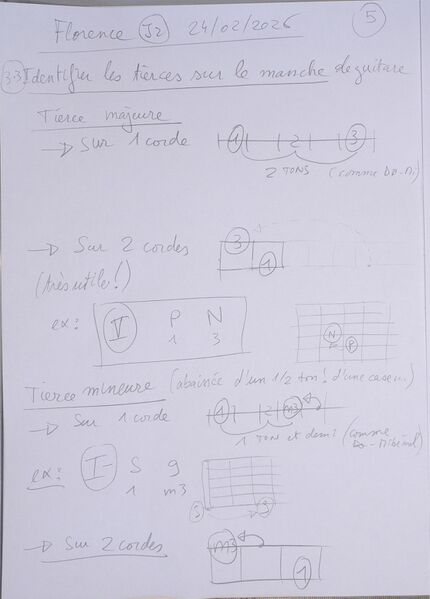 Florence J2 24/02/2026 5
3.3 Identifier les tierces sur le manche de guitare
Tierce majeure
→ Sur 1 corde 1 2 3
2 TONS (comme Do-Mi)
→ Sur 2 cordes 3
(très utile!) 1
ex: V P N
1 3
N P
Tierce mineure (abaissée d'un 1/2 ton! d'une case)
→ Sur 1 corde 1 2 m3
1 TON et demi (comme Do-Mibémol)
ex: I- S g
1 m3
S g
→ Sur 2 cordes m3
1